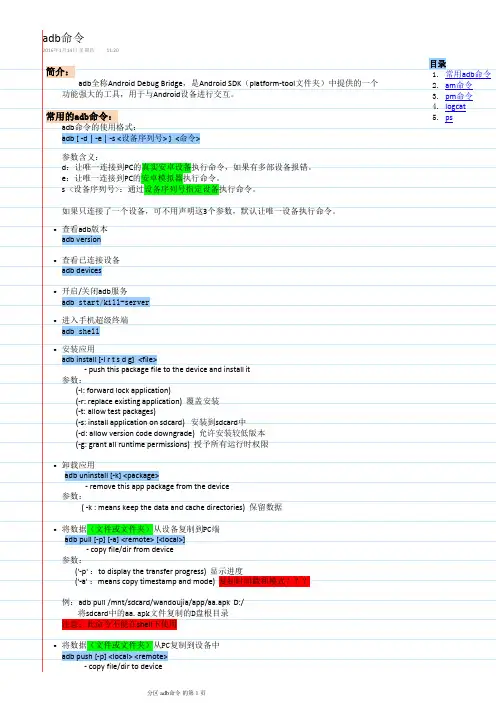 adb命令
2016年1月14日 星期四 11:20
简介:
adb全称Android Debug Bridge，是Android SDK（platform-tool文件夹）中提供的一个
功能强大的工具，用于与Android设备进行交互。
目录
1. 常用adb命令
2. am命令
3. pm命令
4. logcat
5. ps
常用的adb命令:
adb命令的使用格式:
adb [ -d | -e | -s <设备序列号> ] <命令>
参数含义:
d: 让唯一连接到PC的真实安卓设备执行命令，如果有多部设备报错。
e: 让唯一连接到PC的安卓模拟器执行命令。
s <设备序列号>: 通过设备序列号指定设备执行命令。
如果只连接了一个设备，可不用声明这3个参数，默认让唯一设备执行命令。
• 查看adb版本
adb version
• 查看已连接设备
adb devices
• 开启/关闭adb服务
adb start/kill-server
• 进入手机超级终端
adb shell
• 安装应用
adb install [-l r t s d g] <file>
- push this package file to the device and install it
参数:
(-l: forward lock application)
(-r: replace existing application) 覆盖安装
(-t: allow test packages)
(-s: install application on sdcard) 安装到sdcard中
(-d: allow version code downgrade) 允许安装较低版本
(-g: grant all runtime permissions) 授予所有运行时权限
• 卸载应用
adb uninstall [-k] <package>
- remove this app package from the device
参数:
( -k : means keep the data and cache directories) 保留数据
• 将数据（文件或文件夹）从设备复制到PC端
adb pull [-p] [-a] <remote> [<local>]
- copy file/dir from device
参数:
('-p' : to display the transfer progress) 显示进度
('-a' : means copy timestamp and mode)
例: adb pull /mnt/sdcard/wandoujia/app/aa.apk D:/
将sdcard中的aa. apk文件复制的D盘根目录
注意: 此命令不能在shell下使用
• 将数据（文件或文件夹）从PC复制到设备中
adb push [-p] <local> <remote>
- copy file/dir to device
分区 adb命令 的第 1 页